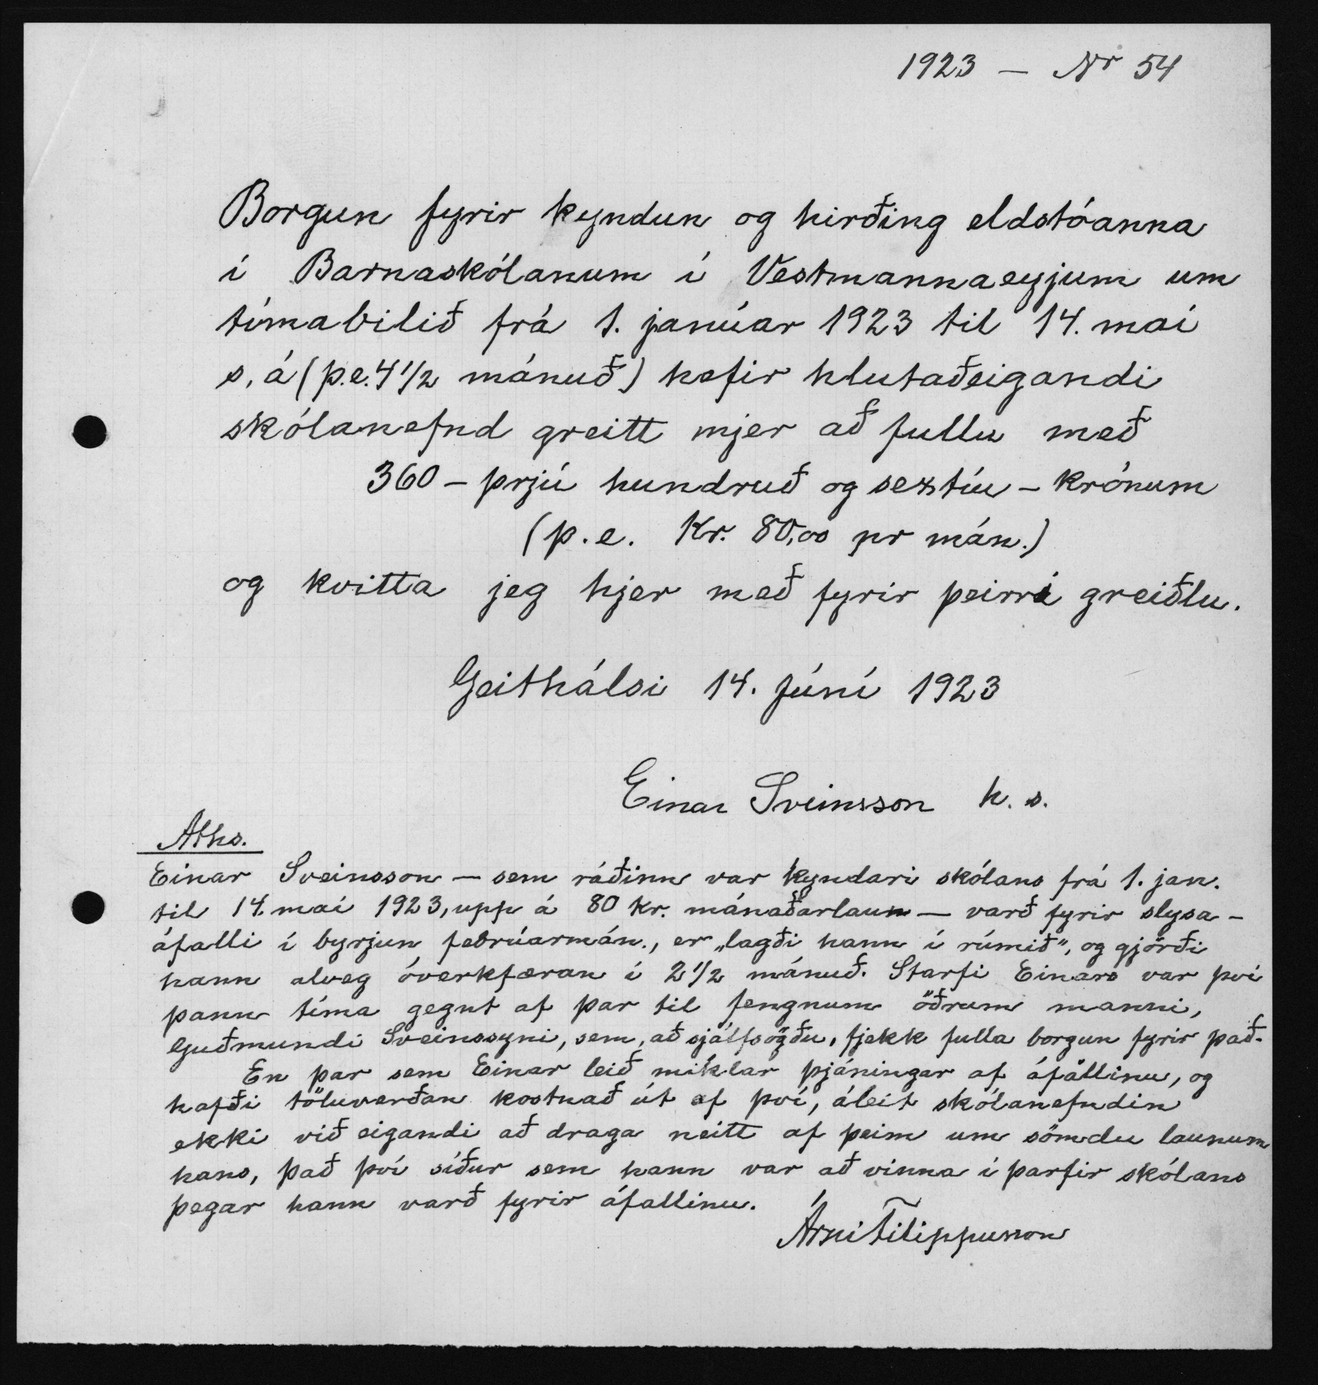 1923 — Nr 54
Borgun fyrir kyndun og hirðing eldstóanna
í Barnaskólanum í Vestmannaeyjum um
tímabilið frá 1. janúar 1923 til 14. maí
s, á (þ.e. 4 1/2 mánuð) hefir hlutaðeigandi
skólanefnd greitt mjer að fullu með
360 – þrjú hundruð og sextíu – krónum
(þ.e. Kr. 80,00 pr mán.)
og kvitta jeg hjer með fyrir þeirri greiðlu.
Geithálsi 14. júní 1923
Einar Sveinsson h. s.
Aths.
Einar Sveinsson — sem ráðinn var kyndari skólans frá 1. jan.
til 14. maí 1923, upp á 80 kr. mánaðarlaun — varð fyrir slysa-
áfalli í byrjun febrúarmán., er „lagði hann í rúmið", og gjörði
hann alveg óverkfæran í 2 1/2 mánuð. Starfi Einars var því
þann tíma gegnt af þar til fengnum öðrum manni,
Guðmundi Sveinssyni, sem, að sjálfsögðu, fjekk fulla borgun fyrir það.
En þar sem Einar leið miklar þjáningar af áfallinu, og
hafði töluverðan kostnað út af því, áleit skólanefndin
ekki við eigandi að draga neitt af þeim um sömdu launum
hans, það því síður sem hann var að vinna í þarfir skólans
þegar hann varð fyrir áfallinu.
Árni Filippusson